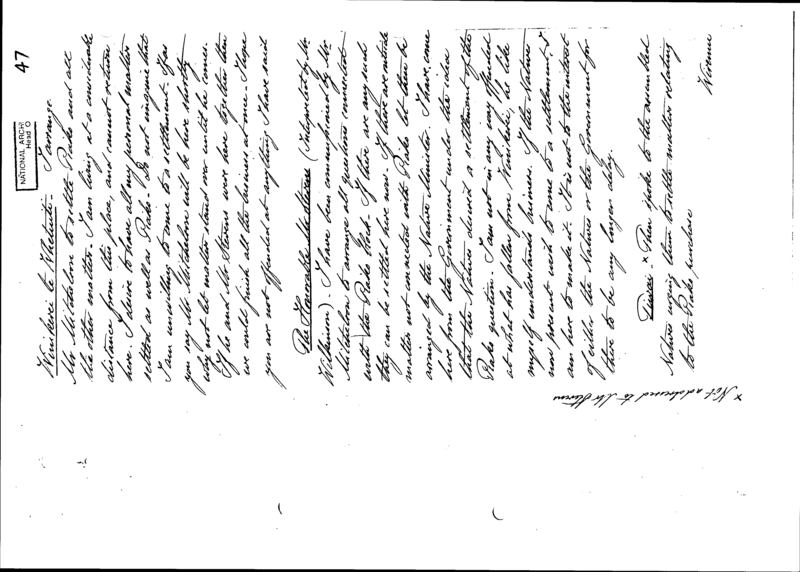 47
NATIONAL ARCHI
Head O
to Whatuiti. I arrange.
Mr Mitchelson to settle Piako and all
the other matters. I am living at a considerable
distance from this place, and cannot return
here. I desire to have all my personal matters
settled as well as Piako. Do not imagine that
I am unwilling to come to a settlement. If as
you say Mr Mitchelson will be here shortly
why not let matters stand over until he comes.
If he and Mr Stevens were here together then
we could finish all the business at once. I hope
you are not offended at anything I have said
The Honorable Mr Stevens (interpreted by Mr
Wilkinson). I have been commissioned by Mr
Mitchelson to arrange all questions connected
with the Piako Block. If there are any such
they can be settled here now. If there are outside
matters not connected with Piako let them be
arranged by the Native Minister. I have come
here from the Government under the idea
that the Natives desired a settlement of the
Piako question. I am not in any way offended
at what has fallen from he like
myself understands business. If the Natives
now present wish to come to a settlement I
am here to make it. It is not to the interest
of either the Natives or the Government for
there to be any longer delay.
x Then spoke to the assembled
Natives urging them to settle matters relating
to the Piako purchase
x Not addressed to Mr Stevens